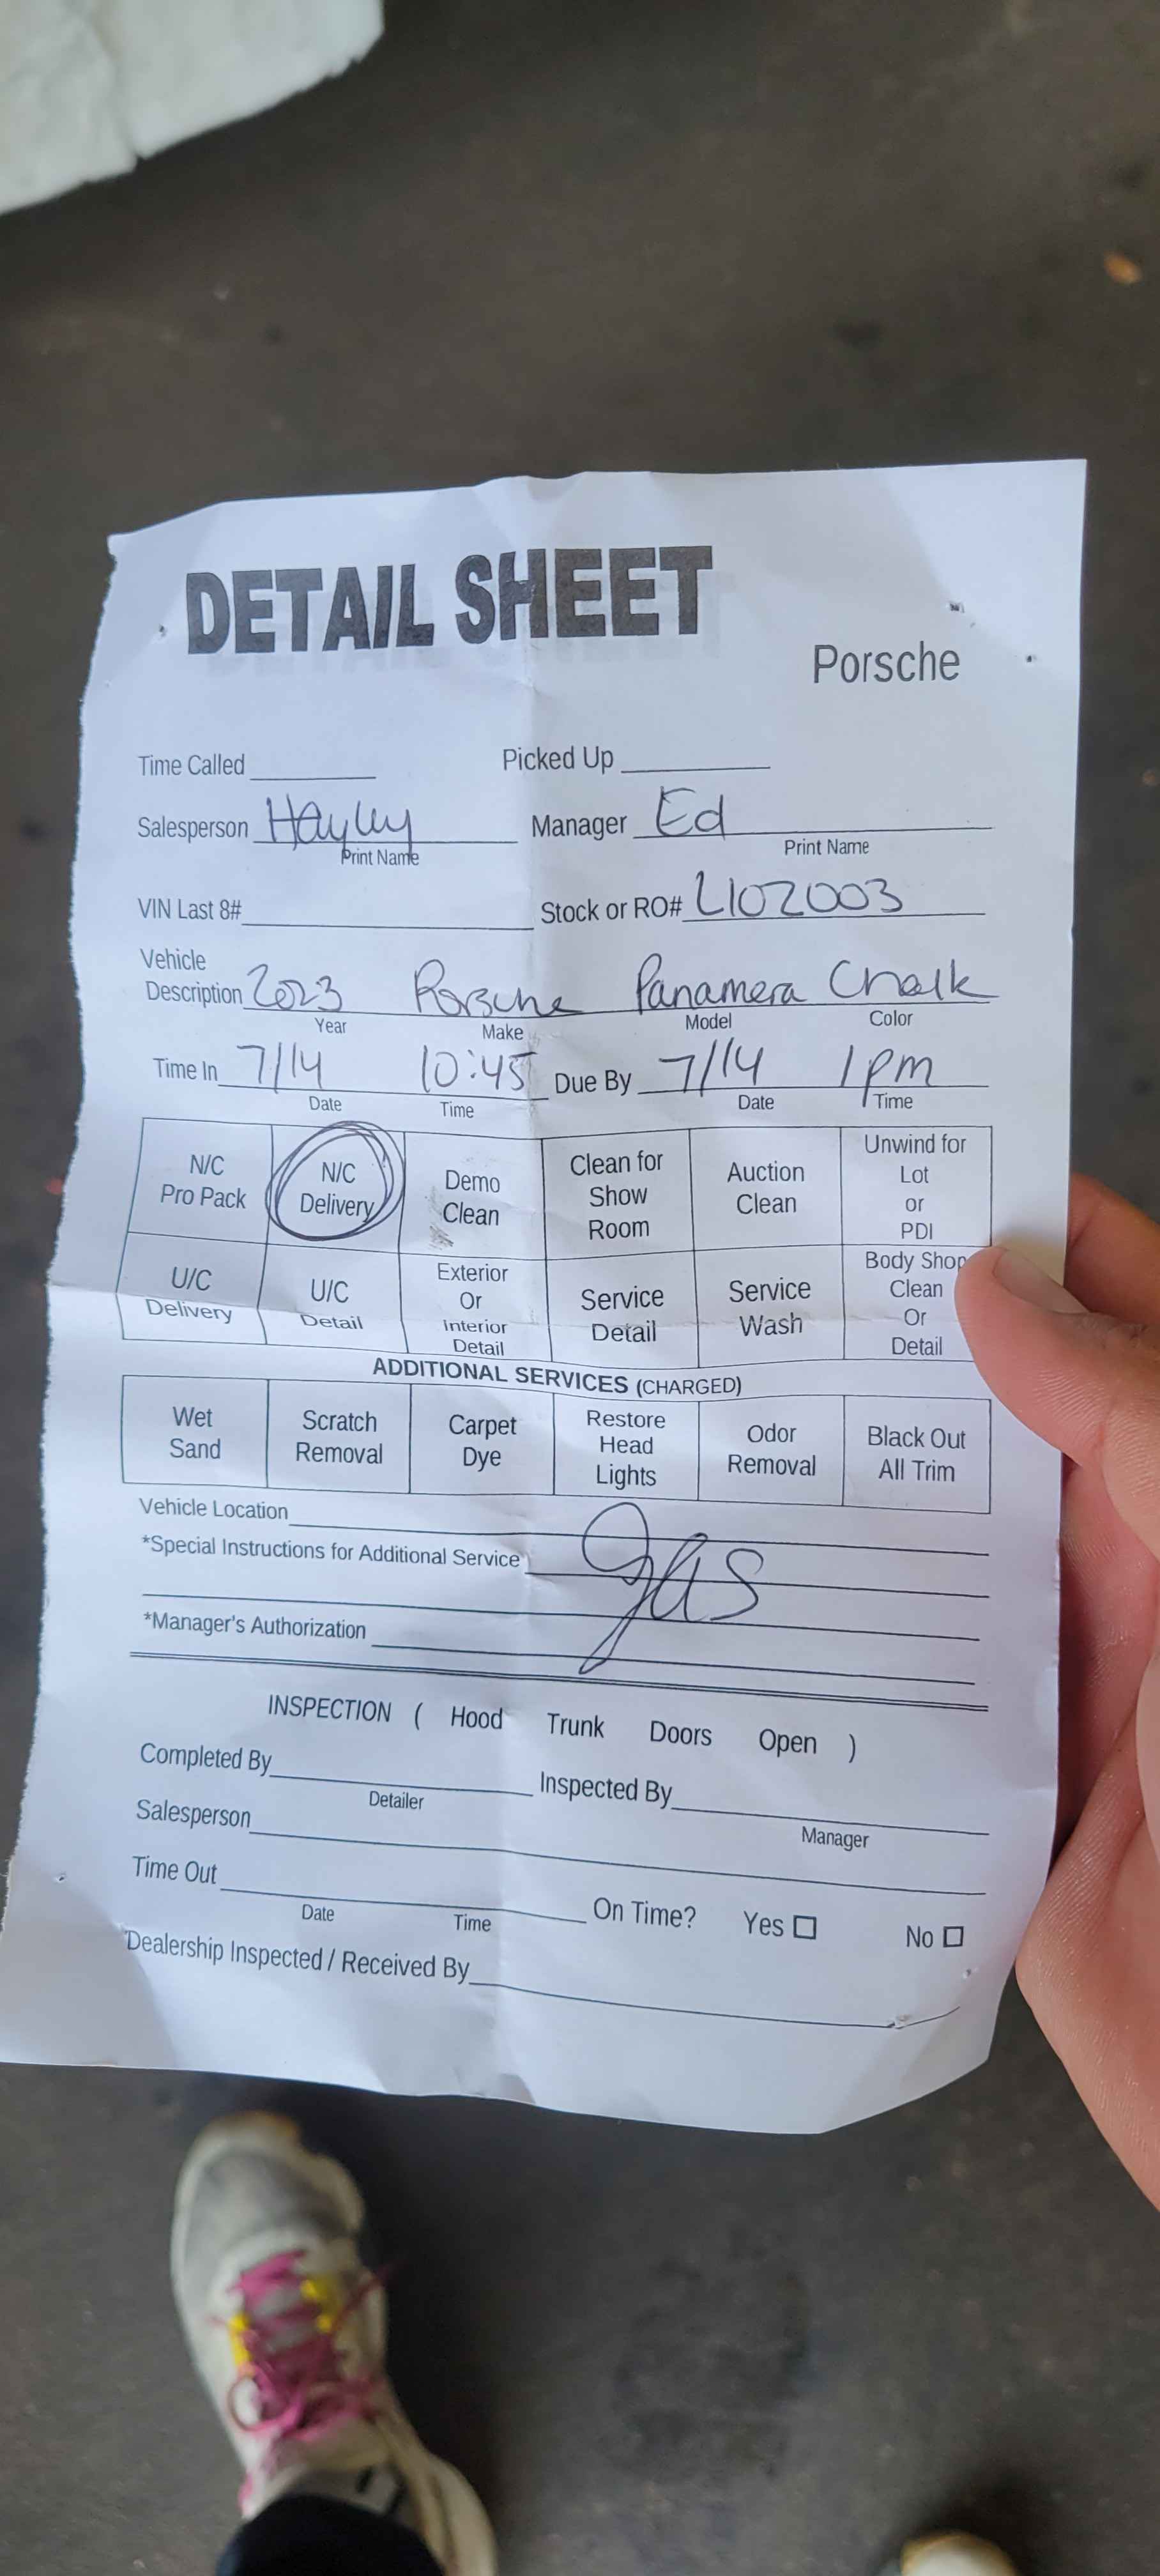 DETAIL SHEET
Porsche
Time Called Picked Up
Salesperson Hayley Manager Ed
Print Name Print Name
VIN Last 8# Stock or RO# L102003
Vehicle
Description 2023 Porsche Panamera Chalk
Year Make Model Color
Time In 7/14 10:45 Due By 7/14 1pm
Date Time Date Time
N/C Pro Pack N/C Delivery Demo Clean Clean for Show Room Auction Clean Unwind for Lot or PDI
U/C Delivery U/C Detail Exterior Or Interior Detail Service Detail Service Wash Body Shop Clean Or Detail
ADDITIONAL SERVICES (CHARGED)
Wet Sand Scratch Removal Carpet Dye Restore Head Lights Odor Removal Black Out All Trim
Vehicle Location
*Special Instructions for Additional Service gas
*Manager's Authorization
INSPECTION ( Hood Trunk Doors Open )
Completed By Inspected By
Detailer Manager
Salesperson
Time Out On Time? Yes No
Date Time
*Dealership Inspected / Received By